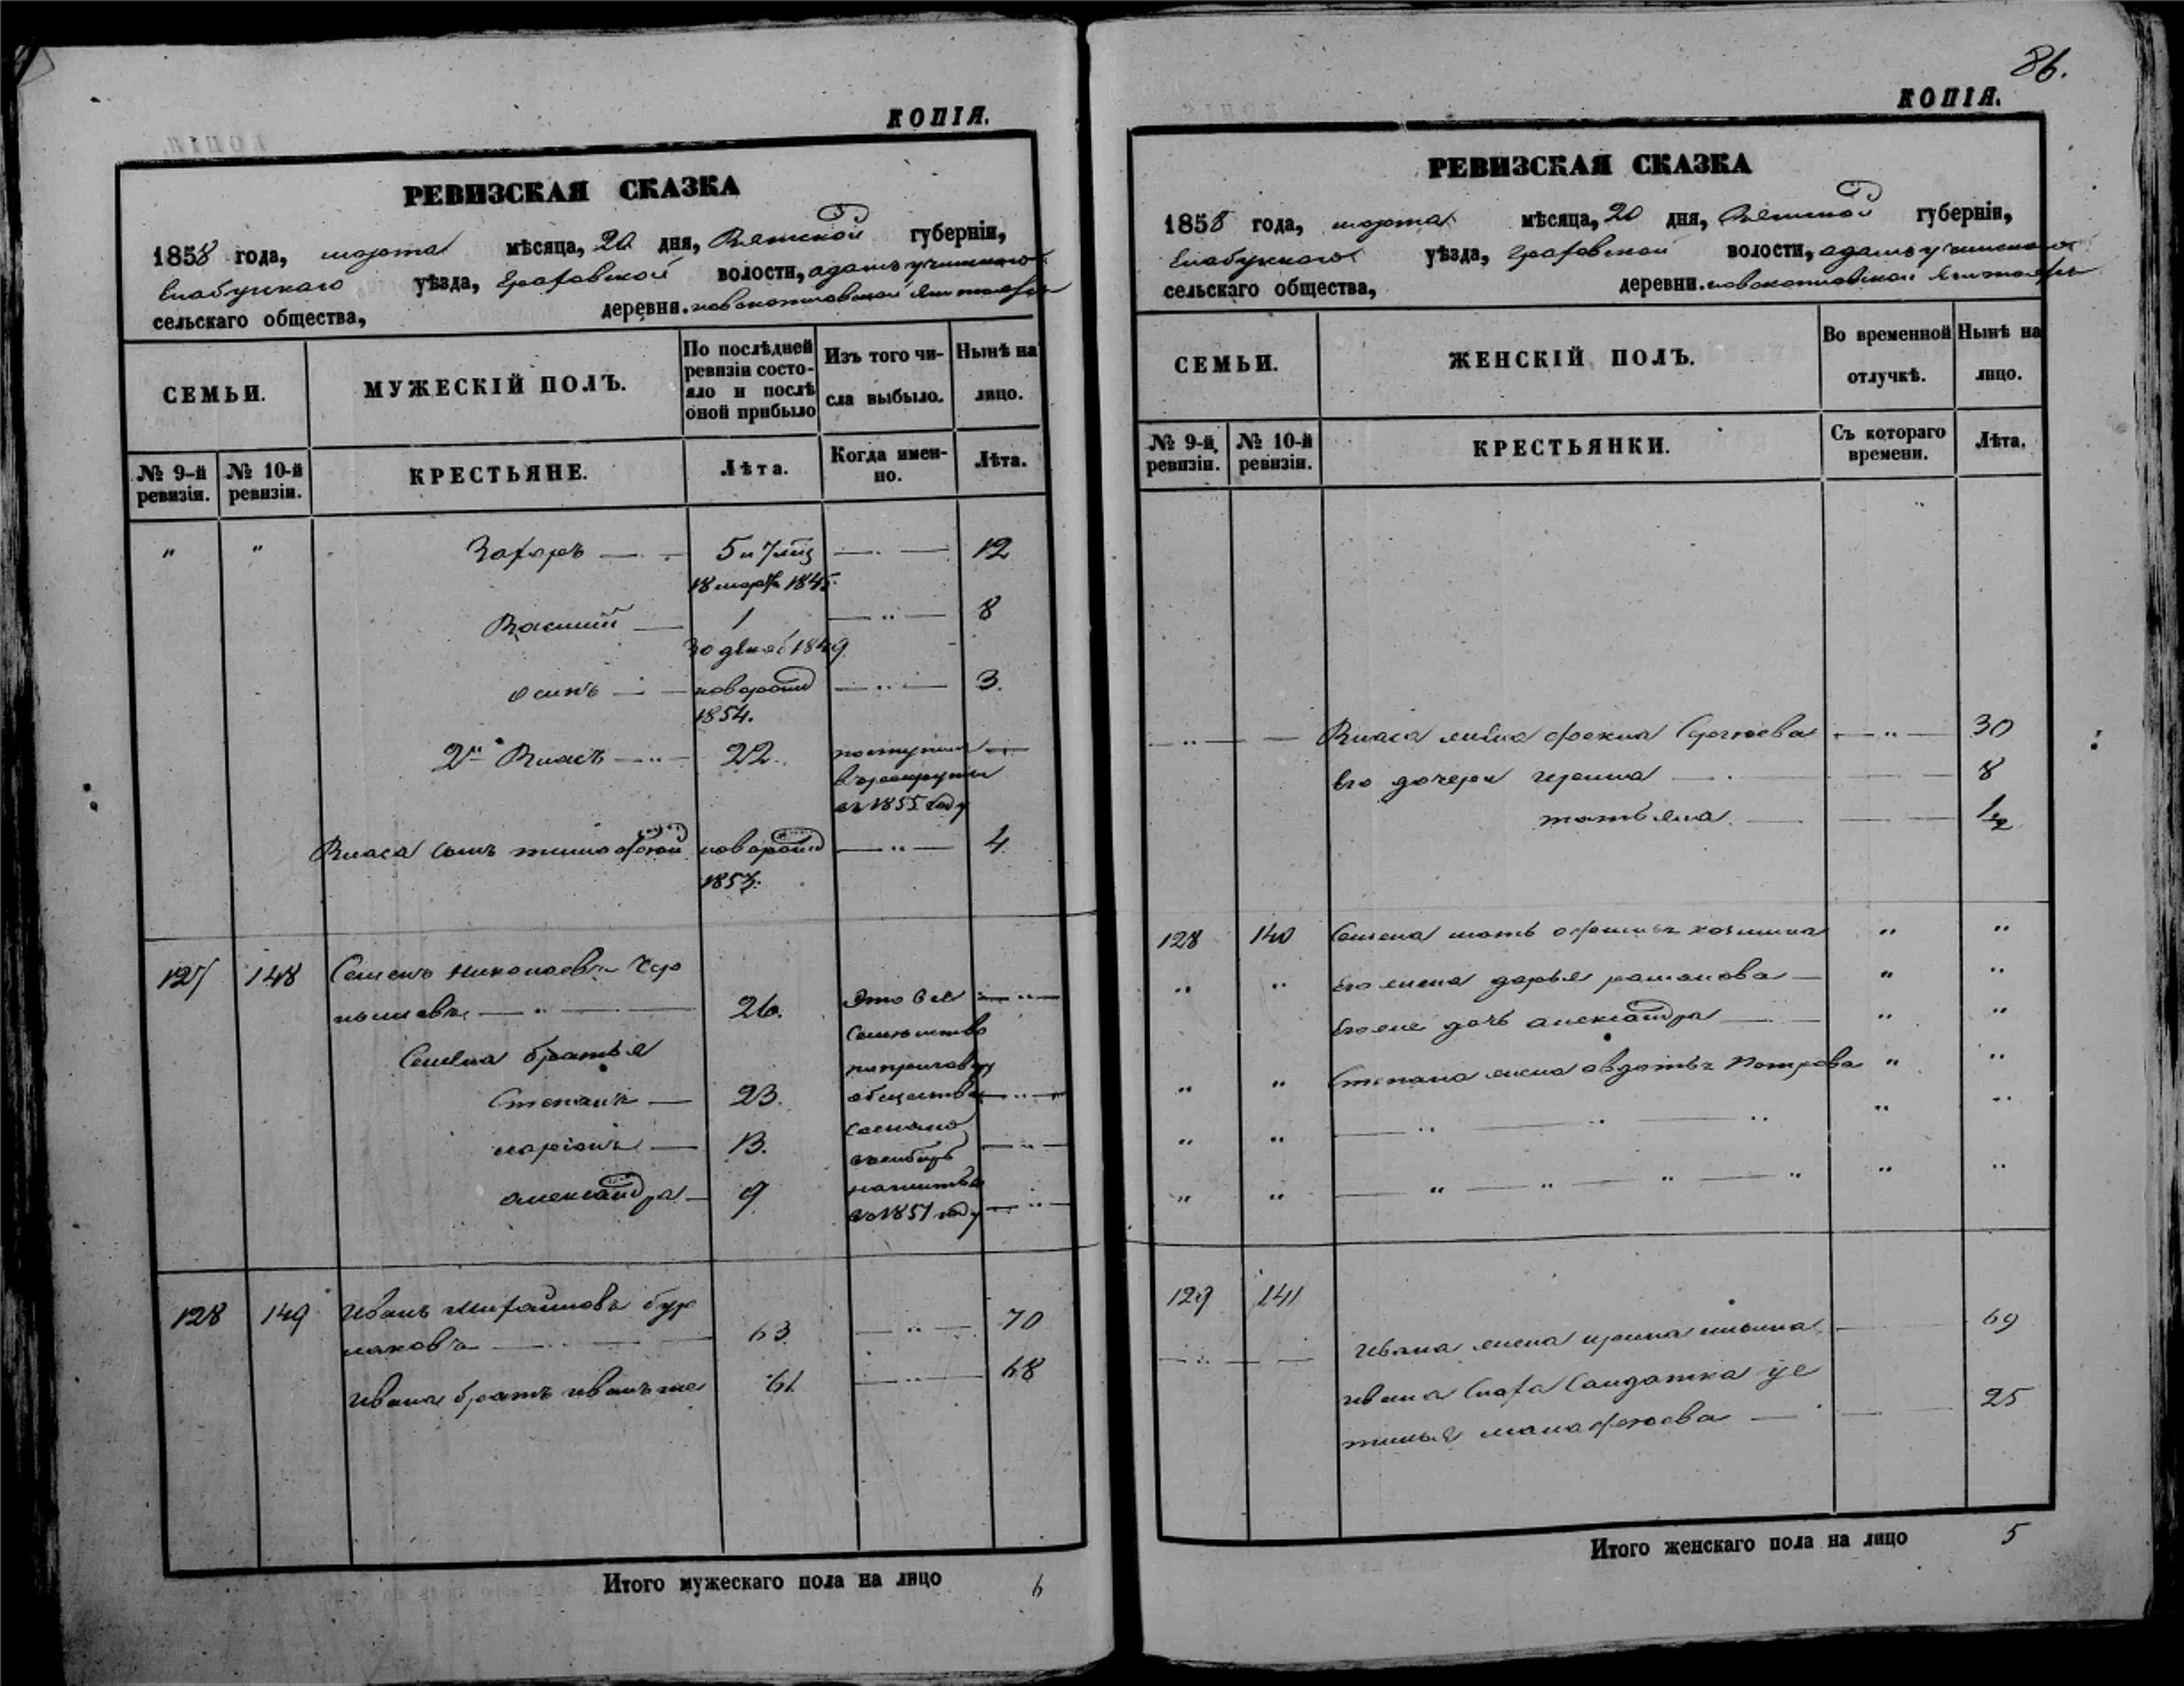 КОПІЯ.
РЕВИЗСКАЯ СКАЗКА
1858 года, марта мѣсяца, 20 дня, Вятской губерніи,
Елабужскаго уѣзда, Граховской волости,
сельскаго общества, деревни.
СЕМЬИ. МУЖЕСКІЙ ПОЛЪ. По послѣдней ревизіи состояло и послѣ оной прибыло Изъ того числа выбыло. Нынѣ на лицо.
№ 9-й ревизіи. № 10-й ревизіи. КРЕСТЬЯНЕ. Лѣта. Когда именно. Лѣта.
" " Захаръ 5 12
18 марта 1845.
Василій 1 8
30 декаб 1849
осипъ новорожд 3.
1854.
2й Власъ 22. поступилъ
в рекруты
въ 1855 году
Власа сынъ тимофей новорожд 4
1853.
127 148 Семенъ Николаевъ Чер
нышевъ 26. Это все
Семейство
Семена братья по приговору
Степанъ 23. общества
сослано
ларіонъ 13. въ сибирь
александра 9 на житье
въ 1851 году
128 149 Иванъ михайловъ бур
лаковъ 63 70
Ивана братъ иванъ же 61 68
Итого мужескаго пола на лицо 6
86.
КОПІЯ.
РЕВИЗСКАЯ СКАЗКА
1858 года, марта мѣсяца, 20 дня, Вятской губерніи,
Елабужскаго уѣзда, Граховской волости,
сельскаго общества, деревни.
СЕМЬИ. ЖЕНСКІЙ ПОЛЪ. Во временной отлучкѣ. Нынѣ на лицо.
№ 9-й ревизіи. № 10-й ревизіи. КРЕСТЬЯНКИ. Съ котораго времени. Лѣта.
Власа жена фекла Сергеева 30
Его дочери ирина 8
татьяна 1/2
128 140 Семена мать козмина " "
" " Его жена дарья романова " "
Его же дочь александра " "
" " Степана жена авдотья Петрова " "
" " " "
" " " "
129 141
Ивана жена ирина ильина 69
ивана Сноха Солдатка ус
тинья 25
Итого женскаго пола на лицо 5